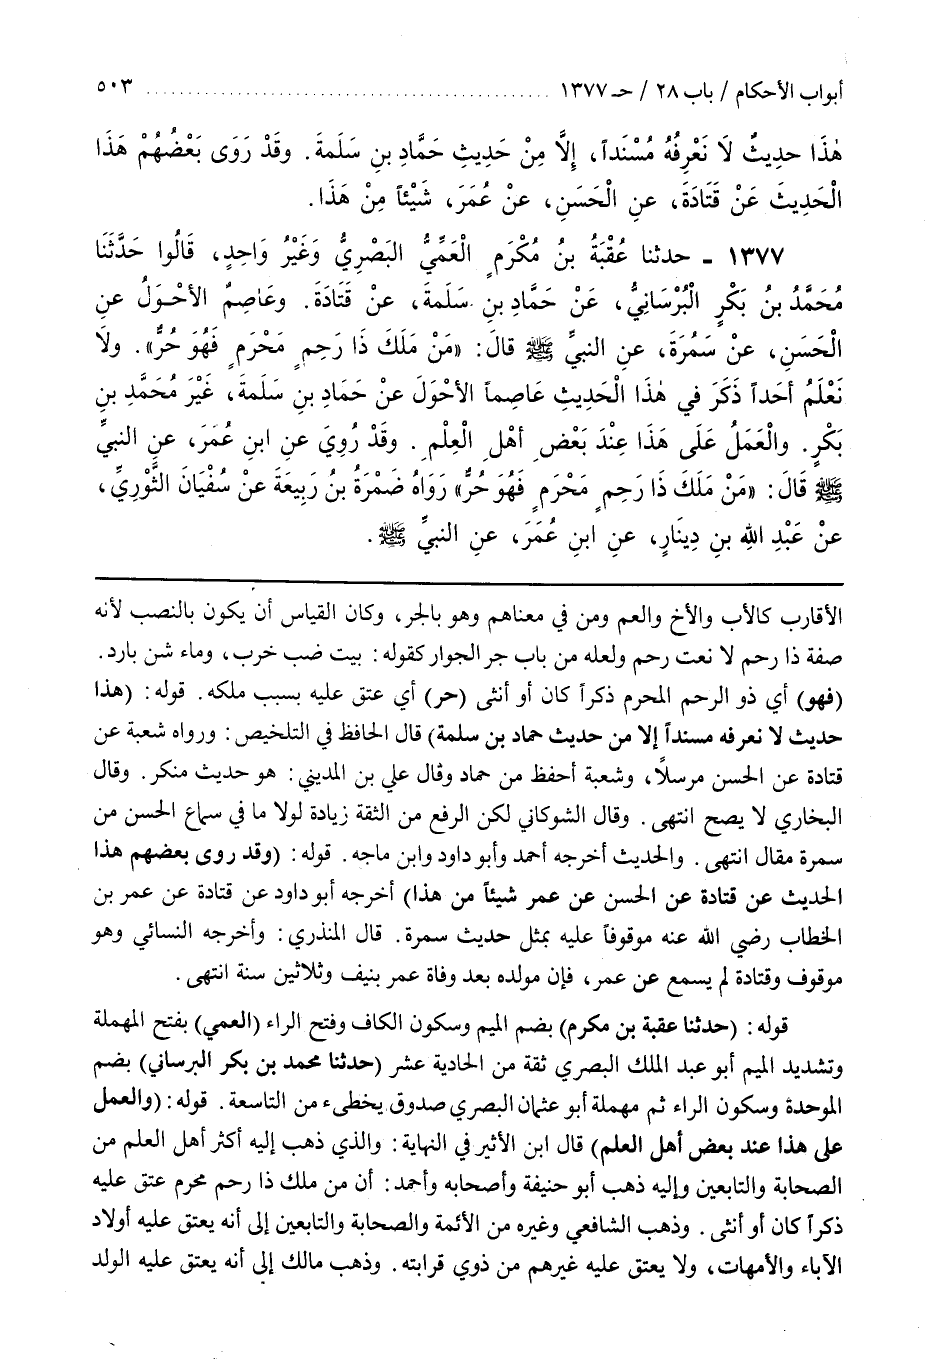 أبواب الأحكام / باب ٢٨ / حـ ١٣٧٧ ................................................ ٥٠٣
هٰذَا حديثٌ لَا نَعْرِفُهُ مُسْنَداً، إِلَّا مِنْ حَدِيثِ حَمَّادِ بنِ سَلَمَةَ. وقَدْ رَوَى بَعْضُهُمْ هَذَا
الْحَدِيثَ عَنْ قَتَادَةَ، عنِ الْحَسَنِ، عنْ عُمَرَ، شَيْئاً مِنْ هَذَا.
١٣٧٧ - حدثنا عُقْبَةُ بنُ مُكْرَمٍ الْعَمِّيُّ البَصْرِيُّ وَغَيْرُ وَاحِدٍ، قَالُوا حَدَّثَنَا
مُحَمَّدُ بنُ بَكْرٍ الْبُرْسَانِيُّ، عَنْ حَمَّادِ بنِ سَلَمَةَ، عنْ قَتَادَةَ. وعَاصِمٌ الأحْوَلُ عنِ
الْحَسَنِ، عنْ سَمُرَةَ، عنِ النبيِّ ﷺ قالَ: «مَنْ مَلَكَ ذَا رَحِمٍ مَحْرَمٍ فَهُوَ حُرٌّ». ولَا
نَعْلَمُ أحَداً ذَكَرَ في هٰذَا الْحَدِيثِ عَاصِماً الأحْوَلَ عنْ حَمَادِ بنِ سَلَمَةَ، غَيْرَ مُحَمَّدِ بنِ
بَكْرٍ. والْعَمَلُ عَلَى هَذَا عِنْدَ بَعْضِ أهْلِ الْعِلْمِ. وقَدْ رُوِيَ عنِ ابنِ عُمَرَ، عنِ النبيِّ
ﷺ قَالَ: «مَنْ مَلَكَ ذَا رَحِمٍ مَحْرَمٍ فَهُوَ حُرٌّ» رَوَاهُ ضَمْرَةُ بنُ رَبِيعَةَ عنْ سُفْيَانَ الثَّوْرِيِّ،
عنْ عَبْدِ اللهِ بنِ دِينَارٍ، عنِ ابنِ عُمَرَ، عنِ النبيِّ ﷺ.
الأقارب كالأب والأخ والعم ومن في معناهم وهو بالجر، وكان القياس أن يكون بالنصب لأنه
صفة ذا رحم لا نعت رحم ولعله من باب جر الجوار كقوله: بيت ضب خرب، وماء شن بارد.
(فهو) أي ذو الرحم المحرم ذكراً كان أو أنثى (حر) أي عتق عليه بسبب ملكه. قوله: (هذا
حديث لا نعرفه مسنداً إلا من حديث حماد بن سلمة) قال الحافظ في التلخيص: ورواه شعبة عن
قتادة عن الحسن مرسلاً، وشعبة أحفظ من حماد وقال علي بن المديني: هو حديث منكر. وقال
البخاري لا يصح انتهى. وقال الشوكاني لكن الرفع من الثقة زيادة لولا ما في سماع الحسن من
سمرة مقال انتهى. والحديث أخرجه أحمد وأبو داود وابن ماجه. قوله: (وقد روى بعضهم هذا
الحديث عن قتادة عن الحسن عن عمر شيئاً من هذا) أخرجه أبو داود عن قتادة عن عمر بن
الخطاب رضي الله عنه موقوفاً عليه بمثل حديث سمرة. قال المنذري: وأخرجه النسائي وهو
موقوف وقتادة لم يسمع عن عمر، فإن مولده بعد وفاة عمر بنيف وثلاثين سنة انتهى.
قوله: (حدثنا عقبة بن مكرم) بضم الميم وسكون الكاف وفتح الراء (العمي) بفتح المهملة
وتشديد الميم أبو عبد الملك البصري ثقة من الحادية عشر (حدثنا محمد بن بكر البرساني) بضم
الموحدة وسكون الراء ثم مهملة أبو عثمان البصري صدوق يخطىء من التاسعة. قوله: (والعمل
على هذا عند بعض أهل العلم) قال ابن الأثير في النهاية: والذي ذهب إليه أكثر أهل العلم من
الصحابة والتابعين وإليه ذهب أبو حنيفة وأصحابه وأحمد: أن من ملك ذا رحم محرم عتق عليه
ذكراً كان أو أنثى. وذهب الشافعي وغيره من الأئمة والصحابة والتابعين إلى أنه يعتق عليه أولاد
الآباء والأمهات، ولا يعتق عليه غيرهم من ذوي قرابته. وذهب مالك إلى أنه يعتق عليه الولد